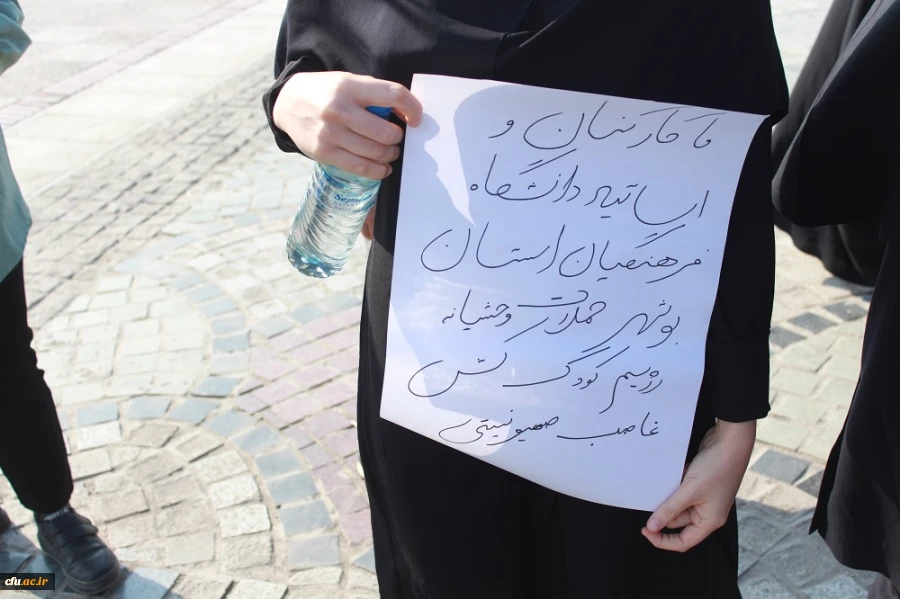 ما کارکنان و
اساتید دانشگاه
فرهنگیان استان
بوشهر حملات وحشیانه
رژیم کودک کش
غاصب صهیونیستی
cfu.ac.ir